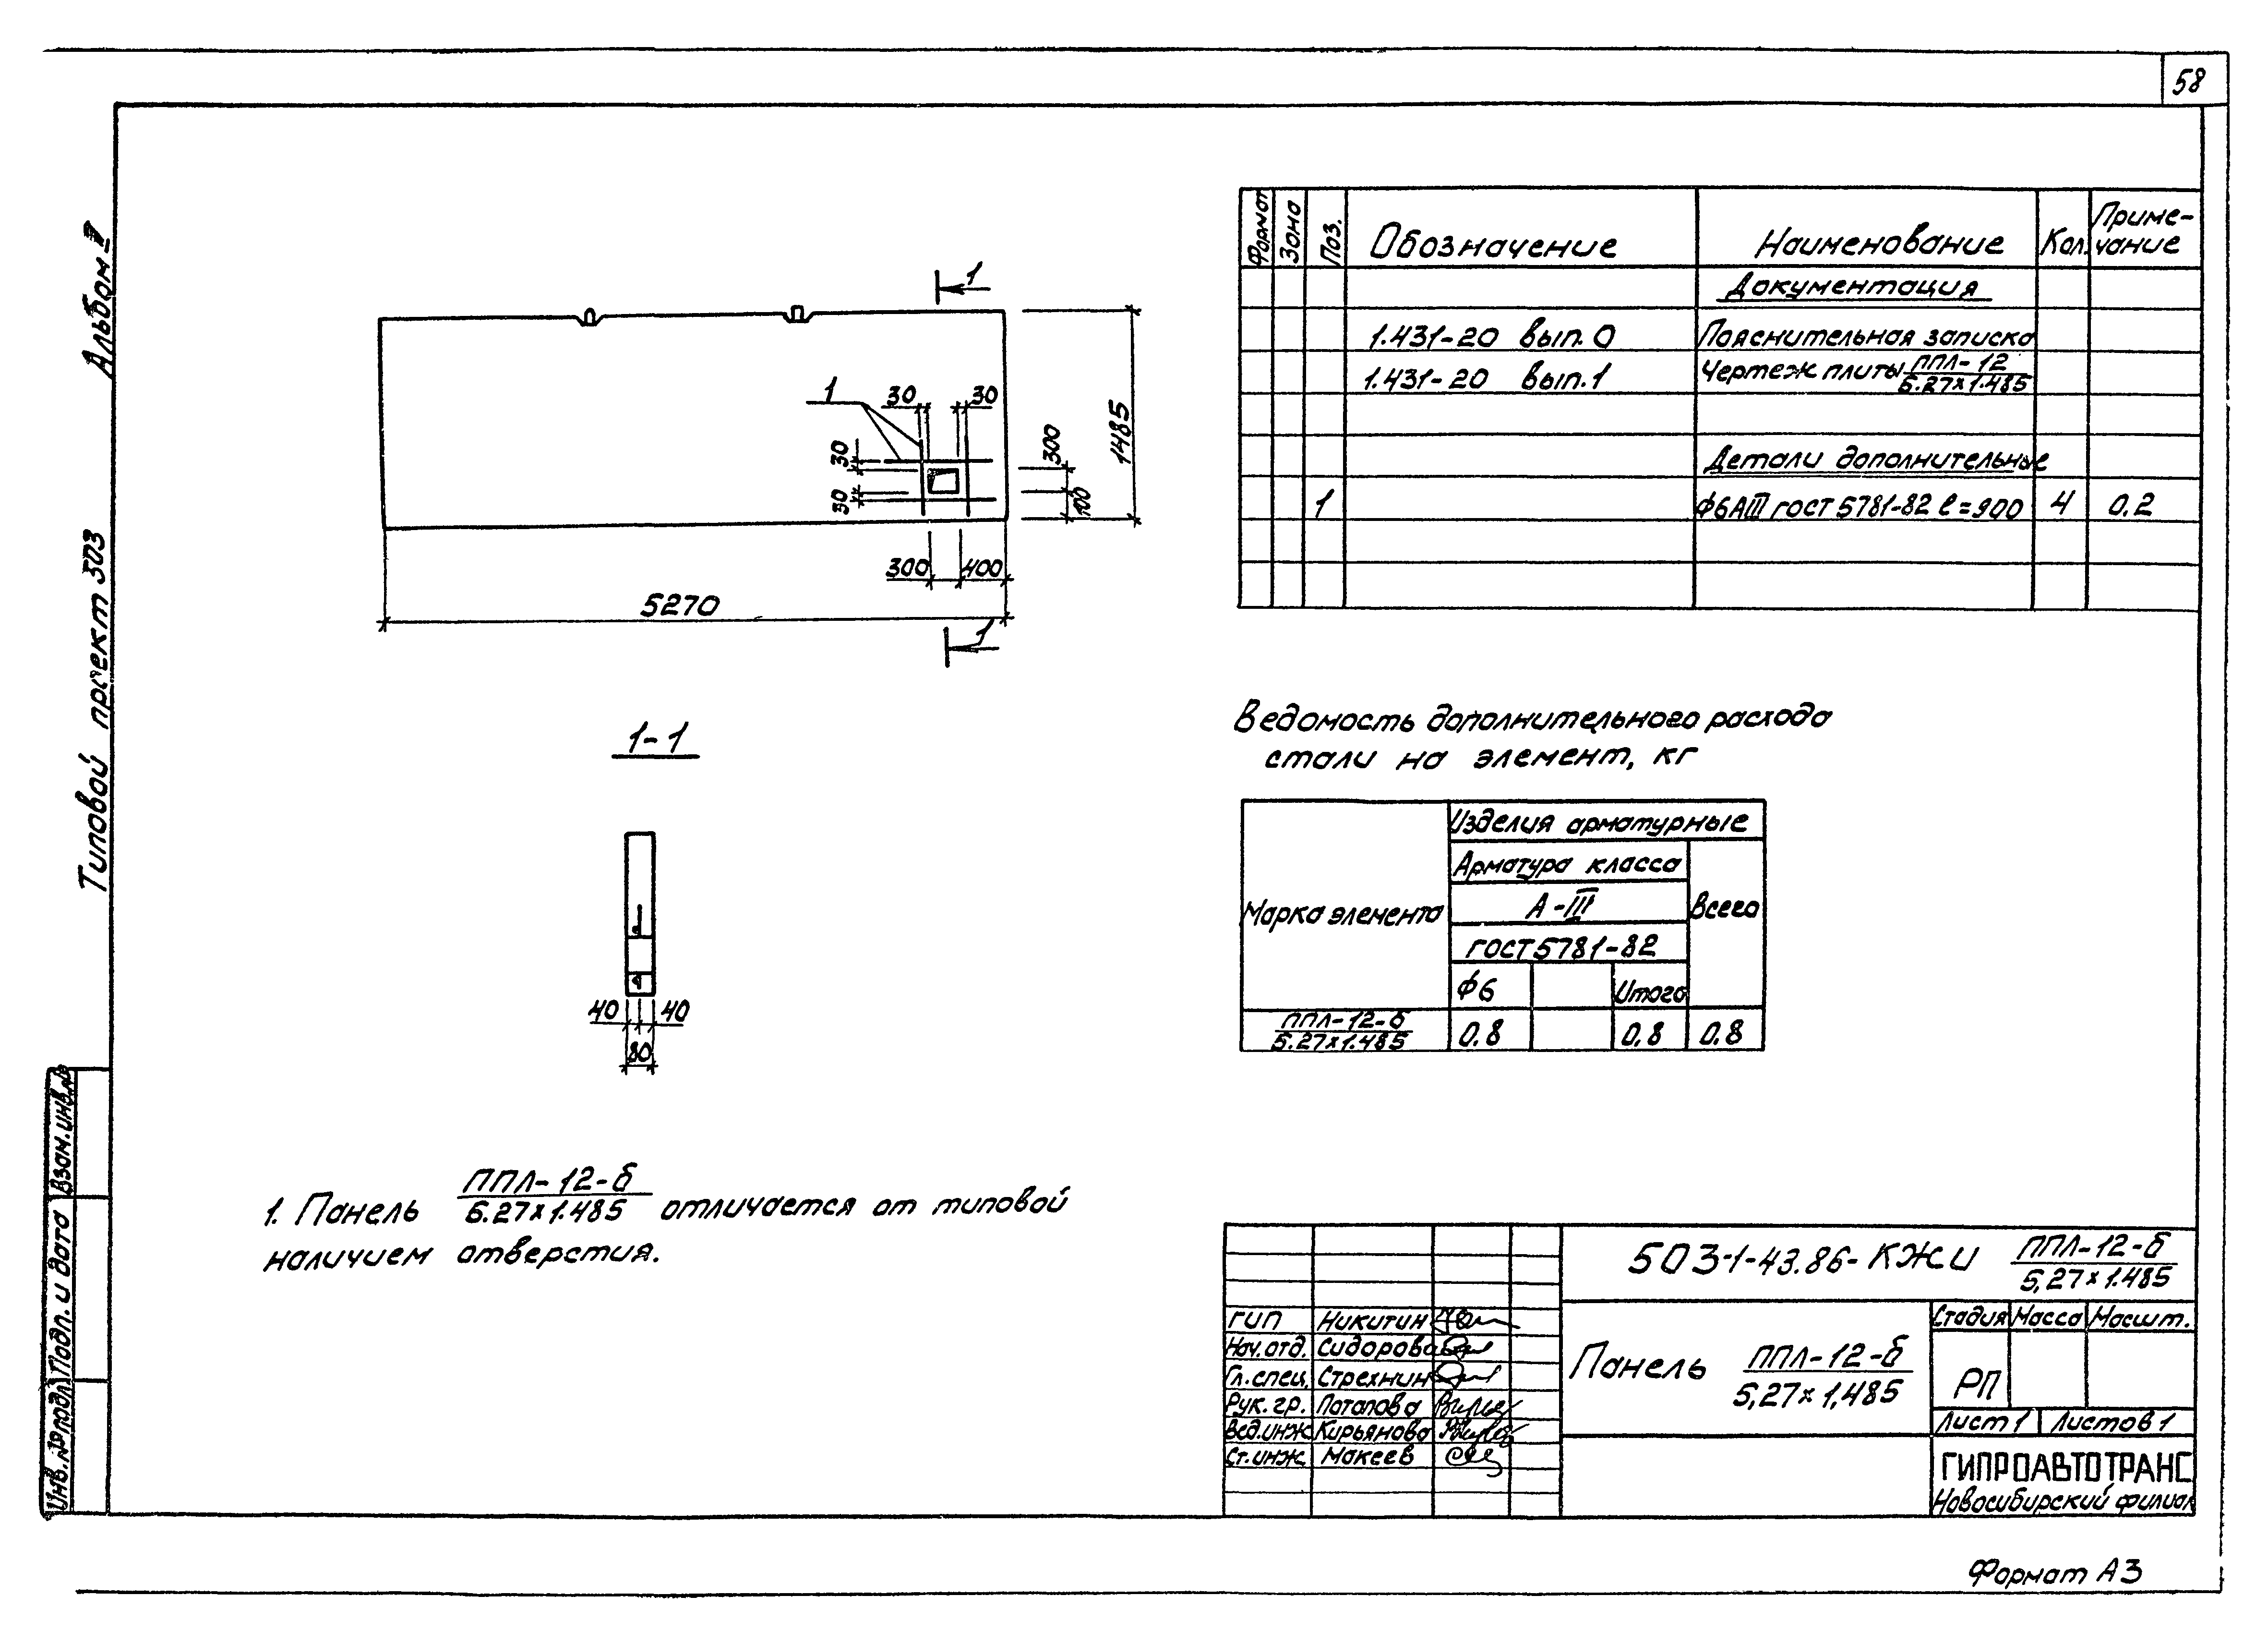 58
Альбом V
Типовой проект 503
Взам. инв. №
Подп. и дата
Инв. № подл.
1
1
30
30
30
30
300
100
1485
300
400
5270
1
1-1
40
40
80
1. Панель ППЛ-12-б / 5.27×1.485 отличается от типовой
наличием отверстия.
Формат Зона Поз. Обозначение Наименование Кол. Приме-
чание
Документация
1.431-20 вып. 0 Пояснительная записка
1.431-20 вып. 1 Чертеж плиты ППЛ-12 / 5.27×1.485
Детали дополнительные
1 ф6АIII ГОСТ 5781-82 ℓ=900 4 0.2
Ведомость дополнительного расхода
стали на элемент, кг
Марка элемента Изделия арматурные
Арматура класса Всего
А-III
ГОСТ 5781-82
ф6 Итого
ППЛ-12-б / 5.27×1.485 0.8 0.8 0.8
503-1-43.86-КЖИ ППЛ-12-б / 5,27×1.485
ГИП Никитин
Нач. отд. Сидорова
Гл. спец. Стрехнин
Рук. гр. Потапова
Вед. инж Кирьянова
Ст. инж. Макеев
Панель ППЛ-12-б / 5,27×1,485
Стадия Масса Масшт.
РП
Лист 1 Листов 1
ГИПРОАВТОТРАНС
Новосибирский филиал
Формат А3